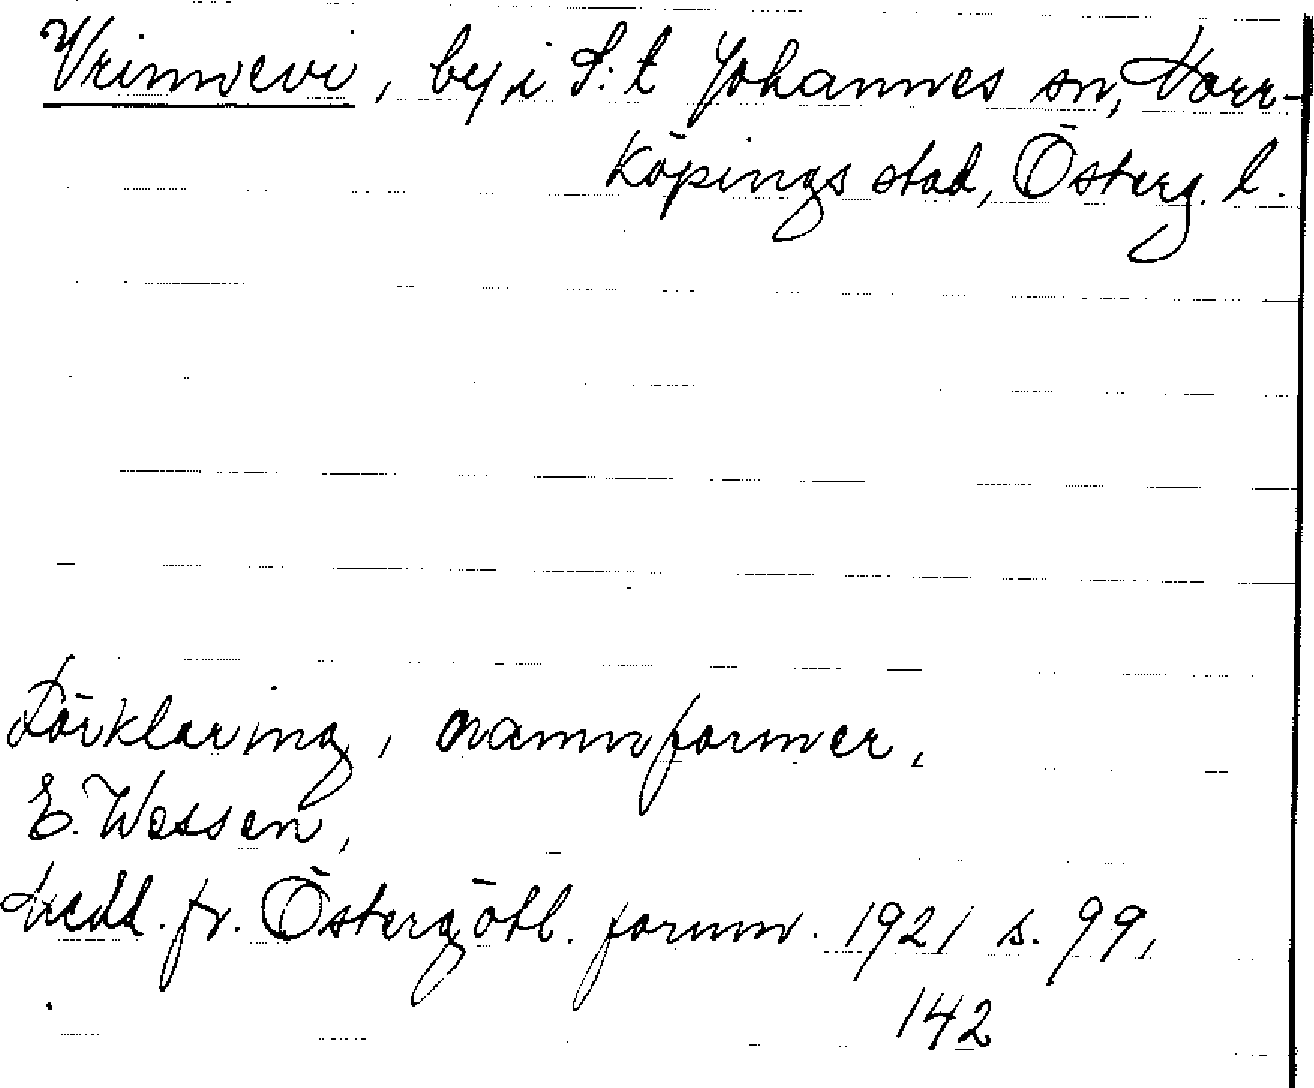 Vrinnevi, by i S:t Johannes sn, Norr-
köpings stad, Österg. l.
Förklaring, namnformer,
E. Wessen,
Medd. fr. Östergötl. fornm. 1921 s. 99,
142